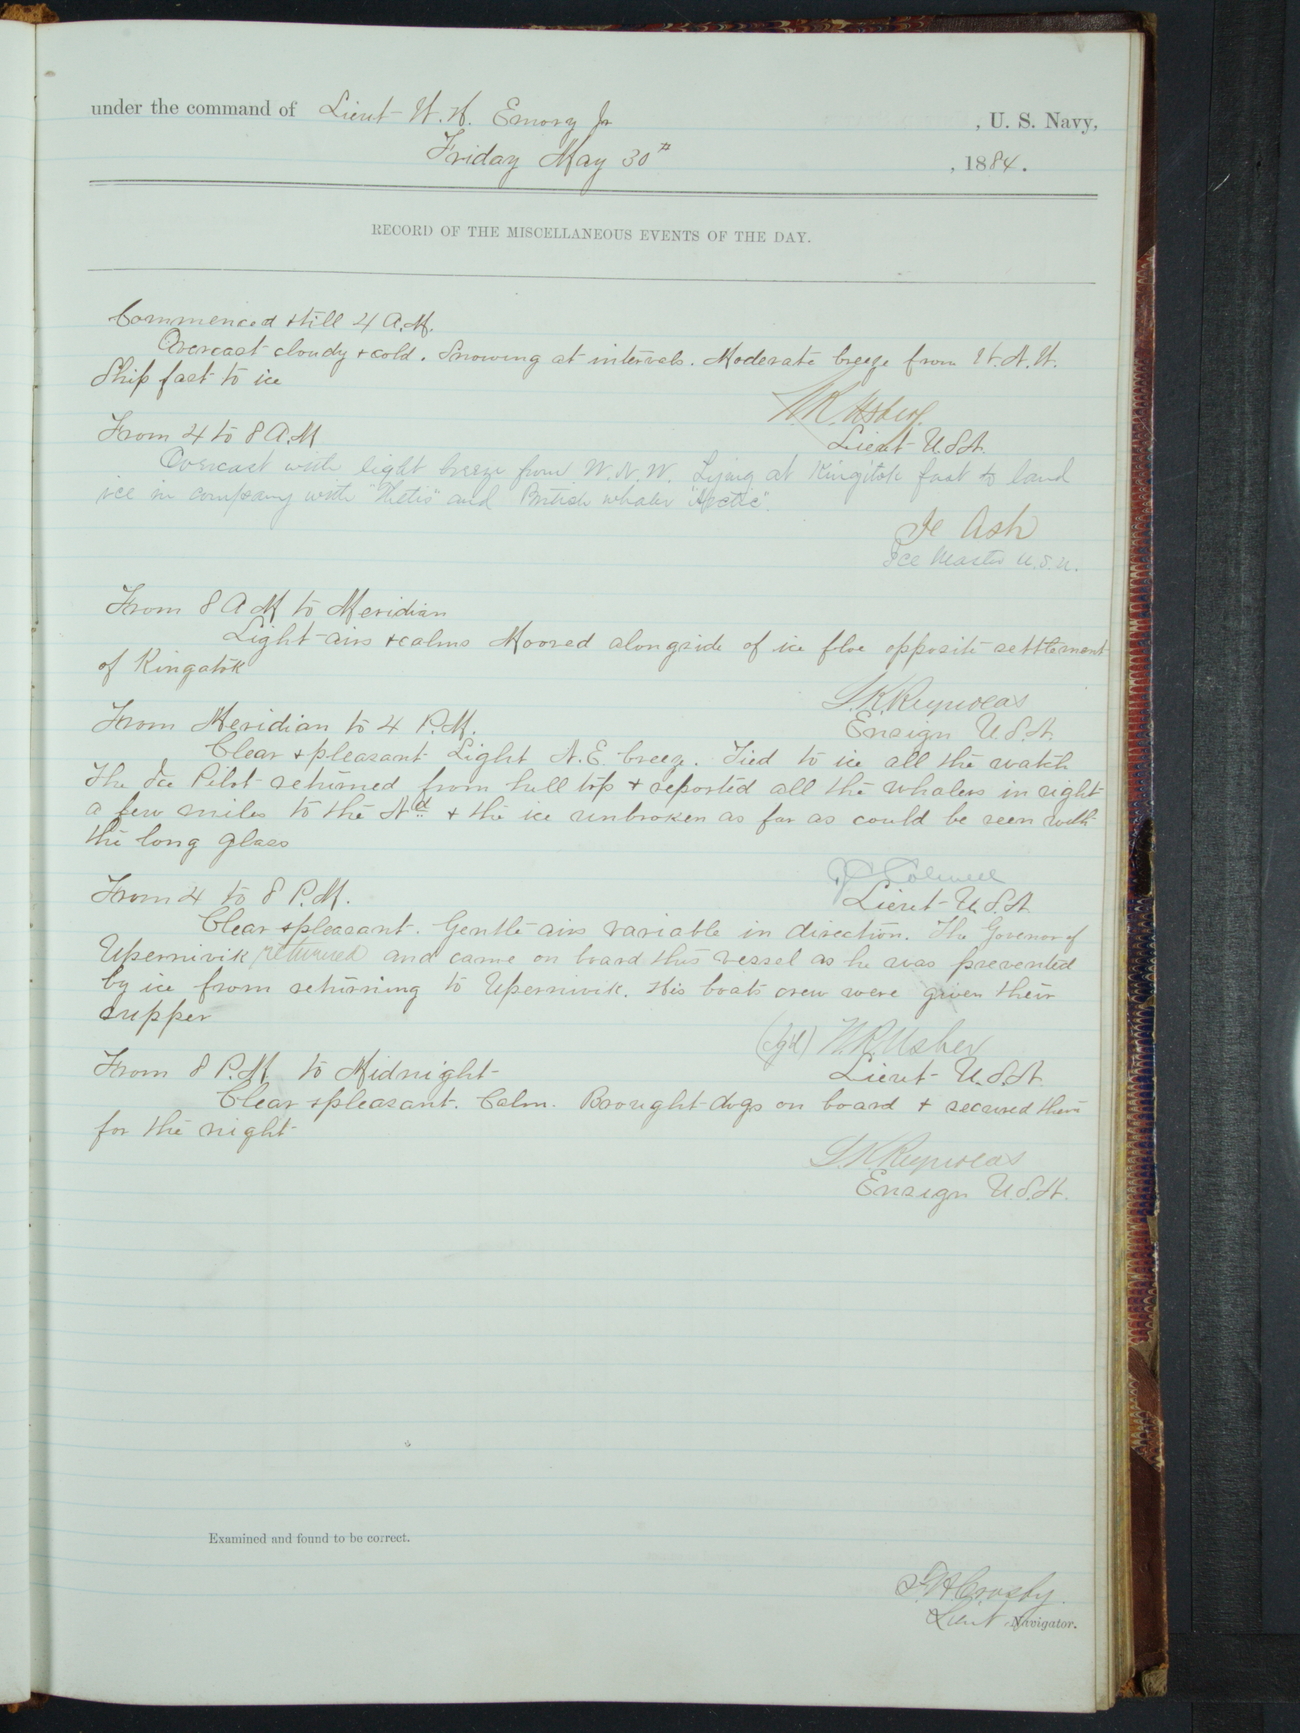 under the command of Lieut W. H. Emory Jr , U. S. Navy,
Friday May 30th , 1884.
RECORD OF THE MISCELLANEOUS EVENTS OF THE DAY.
Commenced & till 4 A.M.
Overcast cloudy & cold. Snowing at intervals. Moderate breeze from W.N.W.
Ship fast to ice
N.R. Usher
Lieut U.S.N.
From 4 to 8 A.M
Overcast with light breeze from W.N.W. Lying at Kingitok fast to land
ice in company with "Thetis" and British whaler "Arctic".
Ash
Ice Master U.S.N.
From 8 A M to Meridian
Light airs & calms Moored alongside of ice floe opposite settlement
of Kingatok
L.K. Reynolds
Ensign U.S.N.
From Meridian to 4 P.M.
Clear & pleasant Light N.E. breeze. Tied to ice all the watch
The Ice Pilot returned from hill top & reported all the whalers in sight
a few miles to the Nd & the ice unbroken as far as could be seen with
the long glass
J C Colwell
Lieut U.S.N
From 4 to 8 P.M.
Clear & pleasant. Gentle airs variable in direction. The Govenor of
Upernivik returned and came on board this vessel as he was prevented
by ice from returning to Upernivik. His boats crew were given their
supper
(sgd) N.R. Usher
Lieut U.S.N.
From 8 P.M. to Midnight
Clear & pleasant. Calm. Brought dogs on board & secured them
for the night
L.K. Reynolds
Ensign U.S.N.
Examined and found to be correct.
F. H. Crosby.
Lieut Navigator.